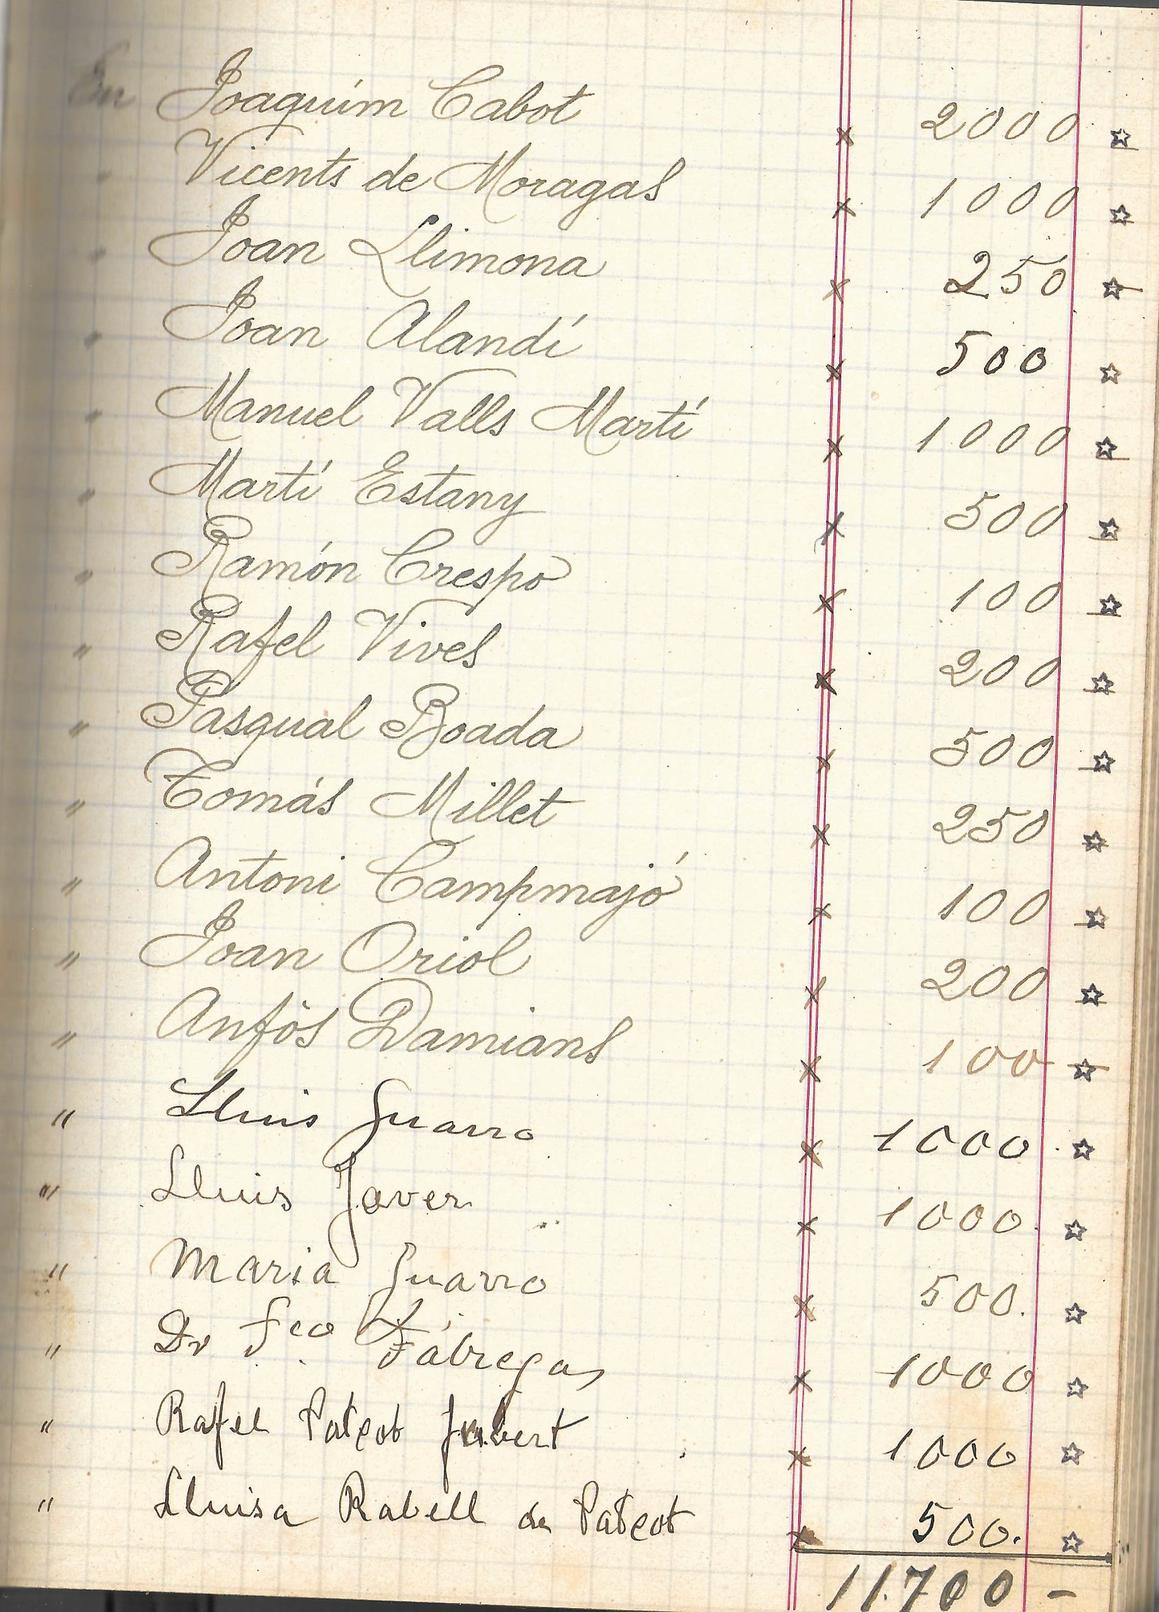 En Joaquim Cabot × 2000 ☆
" Vicents de Moragas × 1000 ☆
" Joan Llimona × 250 ☆
" Joan Alandí × 500 ☆
" Manuel Valls Martí × 1000 ☆
" Martí Estany × 500 ☆
" Ramón Crespo × 100 ☆
" Rafel Vives × 200 ☆
" Pasqual Boada × 500 ☆
" Tomás Millet × 250 ☆
" Antoni Campmajó × 100 ☆
" Joan Oriol × 200 ☆
" Anfòs Damians × 100 ☆
" Lluis Guarro × 1000 ☆
" Lluis Jover × 1000 ☆
" Maria Guarro × 500. ☆
" Dr Fco Fábregas × 1000 ☆
" Rafel Patxot Jubert × 1000 ☆
" Lluisa Rabell de Patxot × 500. ☆
11.700 -